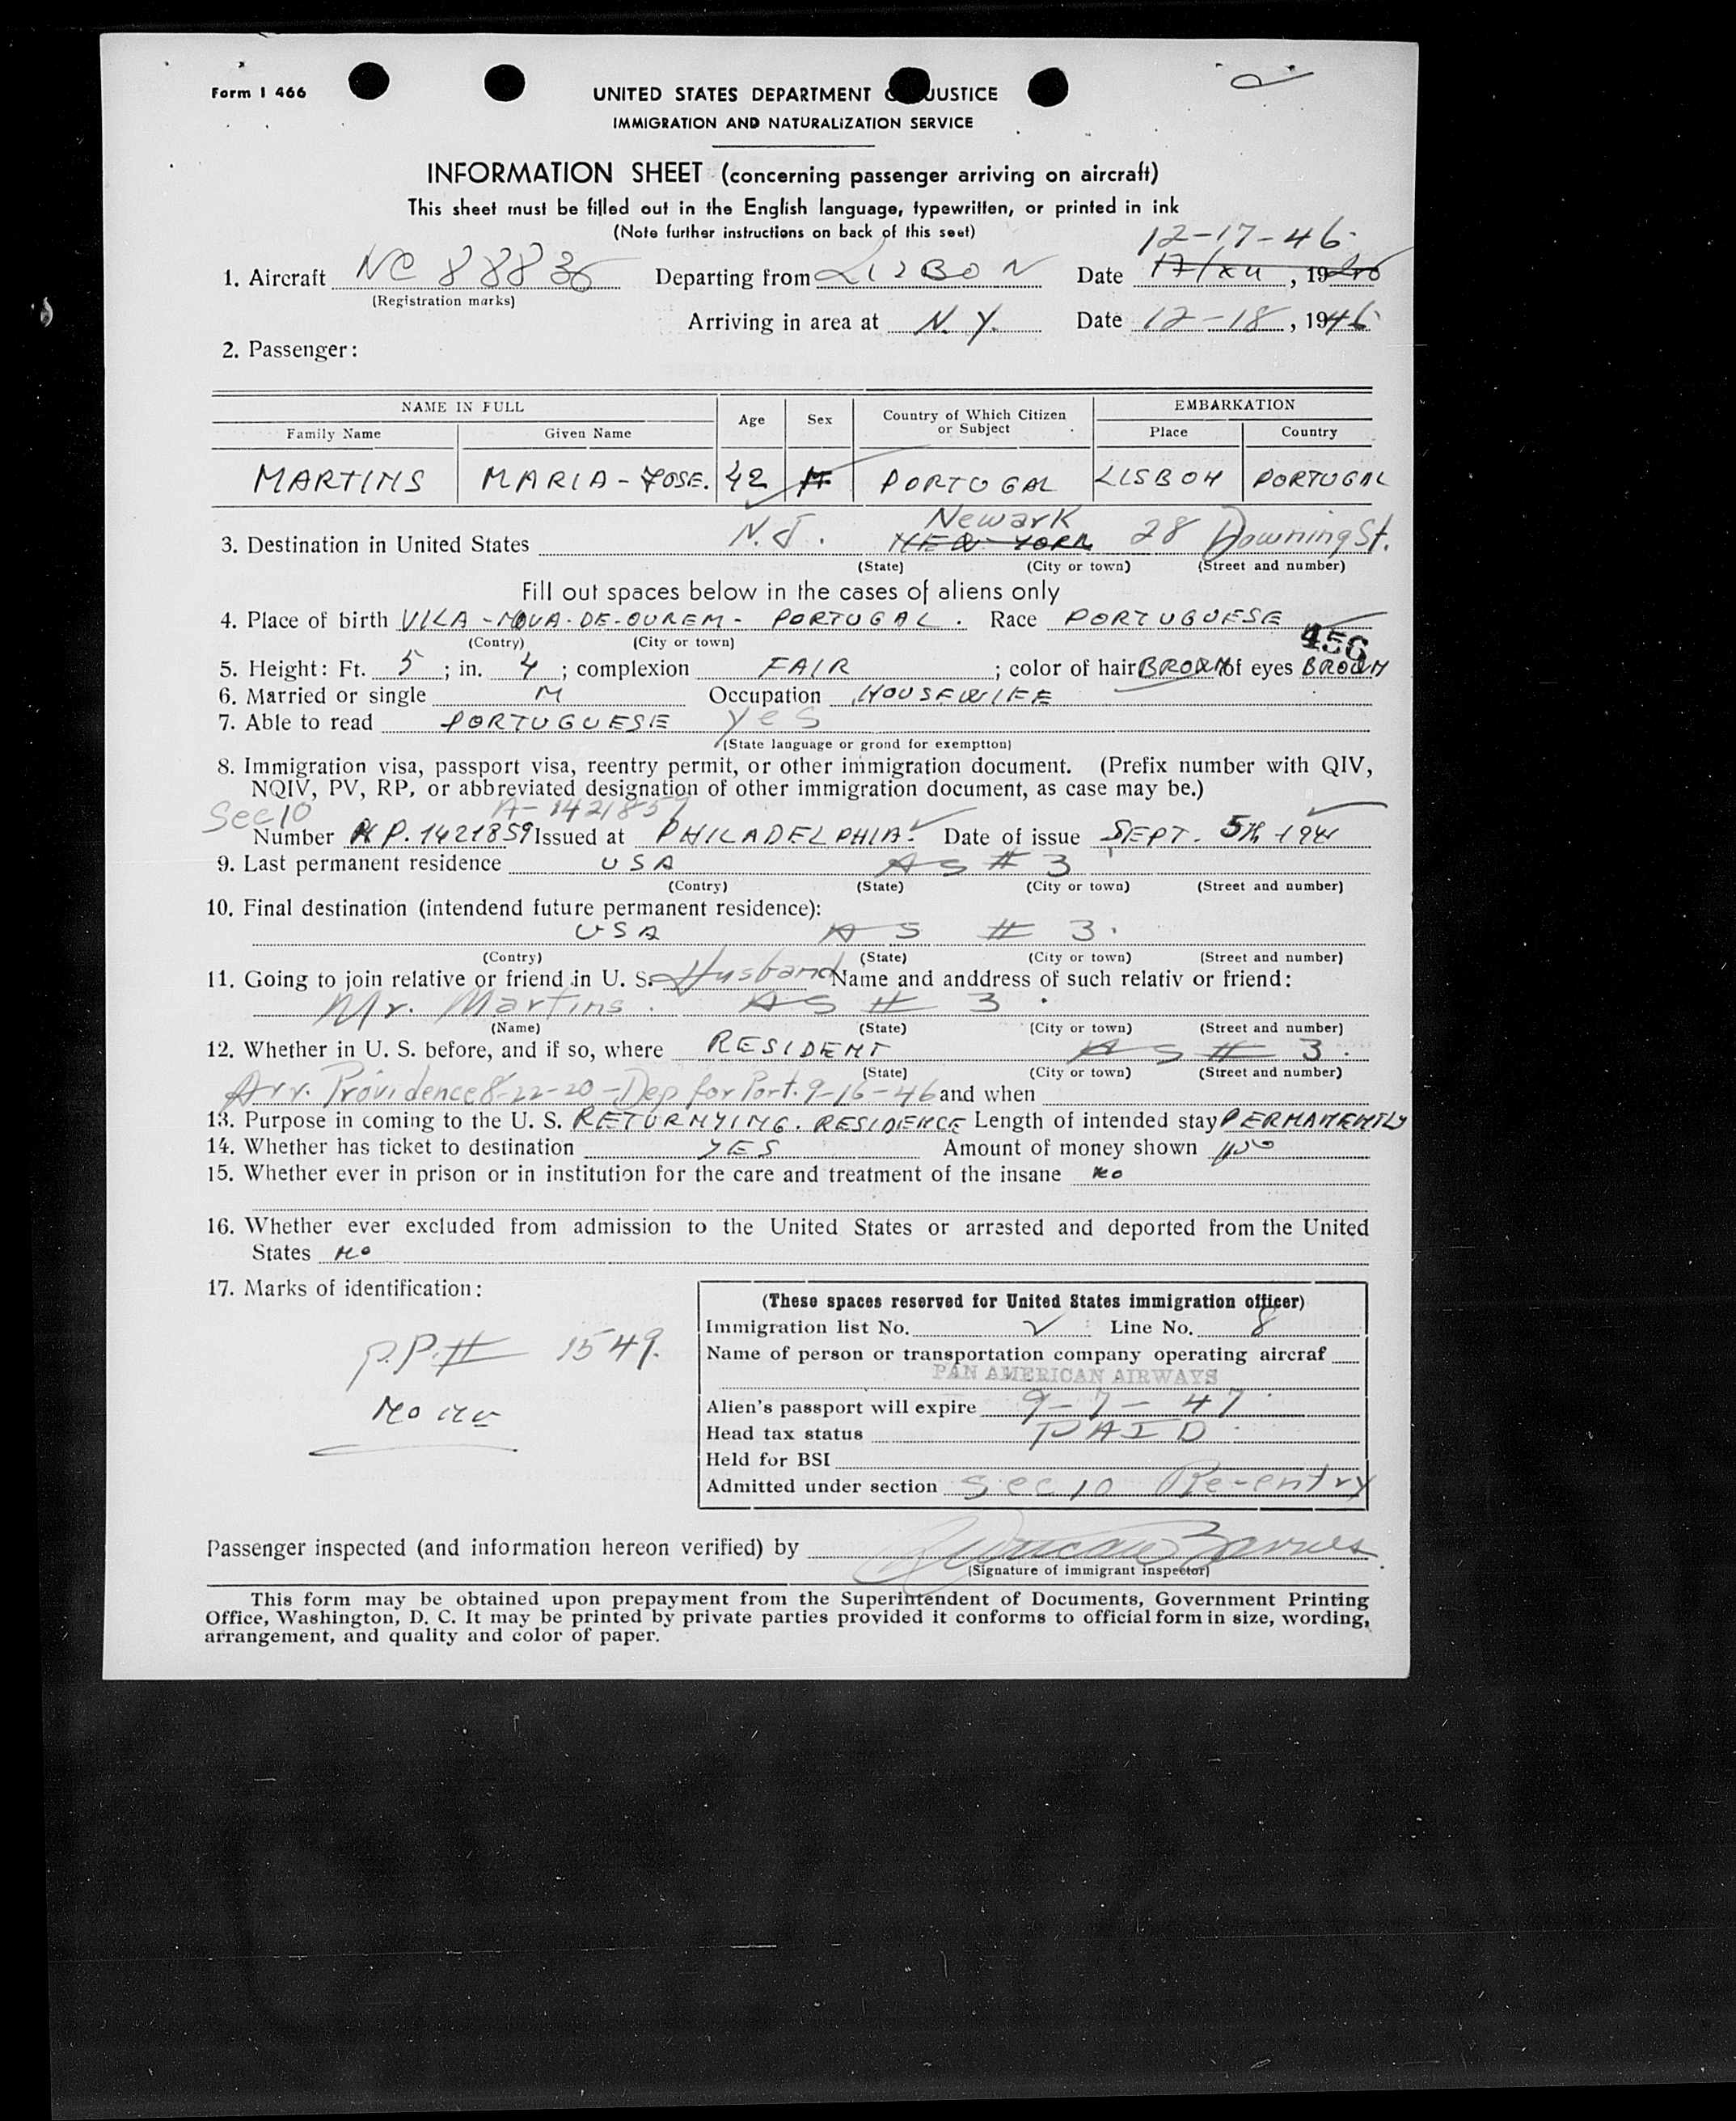 Form I 466
UNITED STATES DEPARTMENT JUSTICE
IMMIGRATION AND NATURALIZATION SERVICE
INFORMATION SHEET (concerning passenger arriving on aircraft)
This sheet must be filled out in the English language, typewritten, or printed in ink
(Note further instructions on back of this seet)
12-17-46
1. Aircraft NC 88836 Departing from LISBON Date 17/XII, 1946
(Registration marks)
Arriving in area at N.Y. Date 12-18, 1946
2. Passenger:
NAME IN FULL Age Sex Country of Which Citizen or Subject EMBARKATION
Family Name Given Name Place Country
MARTINS MARIA-JOSE. 42 M PORTUGAL LISBON PORTUGAL
Newark
3. Destination in United States N.J. NEW YORK 28 Downing St.
(State) (City or town) (Street and number)
Fill out spaces below in the cases of aliens only
4. Place of birth VILA-NOVA-DE-OUREM- PORTUGAL. Race PORTUGUESE
(Contry) (City or town)
456
5. Height: Ft. 5; in. 4; complexion FAIR; color of hair BROWN of eyes BROWN
6. Married or single M Occupation HOUSEWIFE
7. Able to read PORTUGUESE yes
(State language or grond for exemption)
8. Immigration visa, passport visa, reentry permit, or other immigration document. (Prefix number with QIV,
NQIV, PV, RP, or abbreviated designation of other immigration document, as case may be.)
Sec 10 A-1421859
Number P. 1421859 Issued at PHILADELPHIA. Date of issue SEPT. 5th
9. Last permanent residence USA AS # 3
(Contry) (State) (City or town) (Street and number)
10. Final destination (intendend future permanent residence):
USA AS # 3.
(Contry) (State) (City or town) (Street and number)
11. Going to join relative or friend in U. S. Husband Name and anddress of such relativ or friend:
Mr. Martins. AS # 3.
(Name) (State) (City or town) (Street and number)
12. Whether in U. S. before, and if so, where RESIDENT AS # 3.
(State) (City or town) (Street and number)
Arr. Providence 8-22-20 - Dep for Port. 9-16-46 and when
13. Purpose in coming to the U. S. RETURNYING. RESIDENCE Length of intended stay PERMANENTLY
14. Whether has ticket to destination YES Amount of money shown
15. Whether ever in prison or in institution for the care and treatment of the insane No
16. Whether ever excluded from admission to the United States or arrested and deported from the United
States No
17. Marks of identification:
P.P.# 1549.
(These spaces reserved for United States immigration officer)
Immigration list No. Line No. 8
Name of person or transportation company operating aircraf
PAN AMERICAN AIRWAYS
Alien's passport will expire 9-7-47
Head tax status PAID
Held for BSI
Admitted under section Sec 10 Re-entry
Passenger inspected (and information hereon verified) by
(Signature of immigrant inspector)
This form may be obtained upon prepayment from the Superintendent of Documents, Government Printing
Office, Washington, D. C. It may be printed by private parties provided it conforms to official form in size, wording,
arrangement, and quality and color of paper.